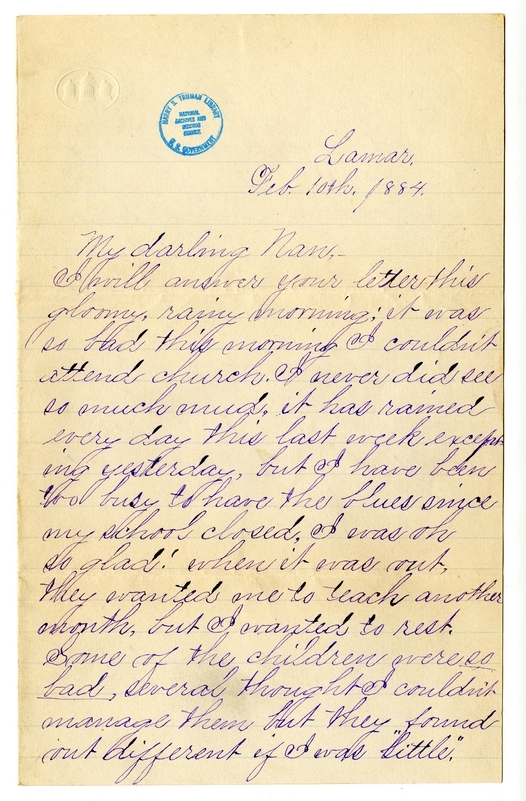 HARRY S. TRUMAN LIBRARY
NATIONAL
ARCHIVES AND
RECORDS
SERVICE
U. S. GOVERNMENT
Lamar.
Feb. 10th. 1884.
My darling Nan,-
I will answer your letter this
gloomy, rainy morning; it was
so bad this morning I couldn't
attend church. I never did see
so much mud, it has rained
every day this last week except-
ing yesterday, but I have been
too busy to have the blues since
my school closed, I was oh
so glad! when it was out,
they wanted me to teach another
month, but I wanted to rest.
Some of the children were so
bad, several thought I couldn't
manage them but they found
out different if I was "little".